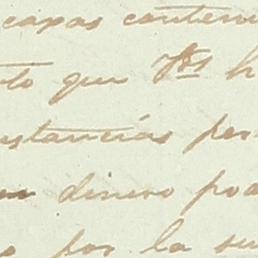 capas conteni
to que Vds h
stancias per
dinero pod
por la su